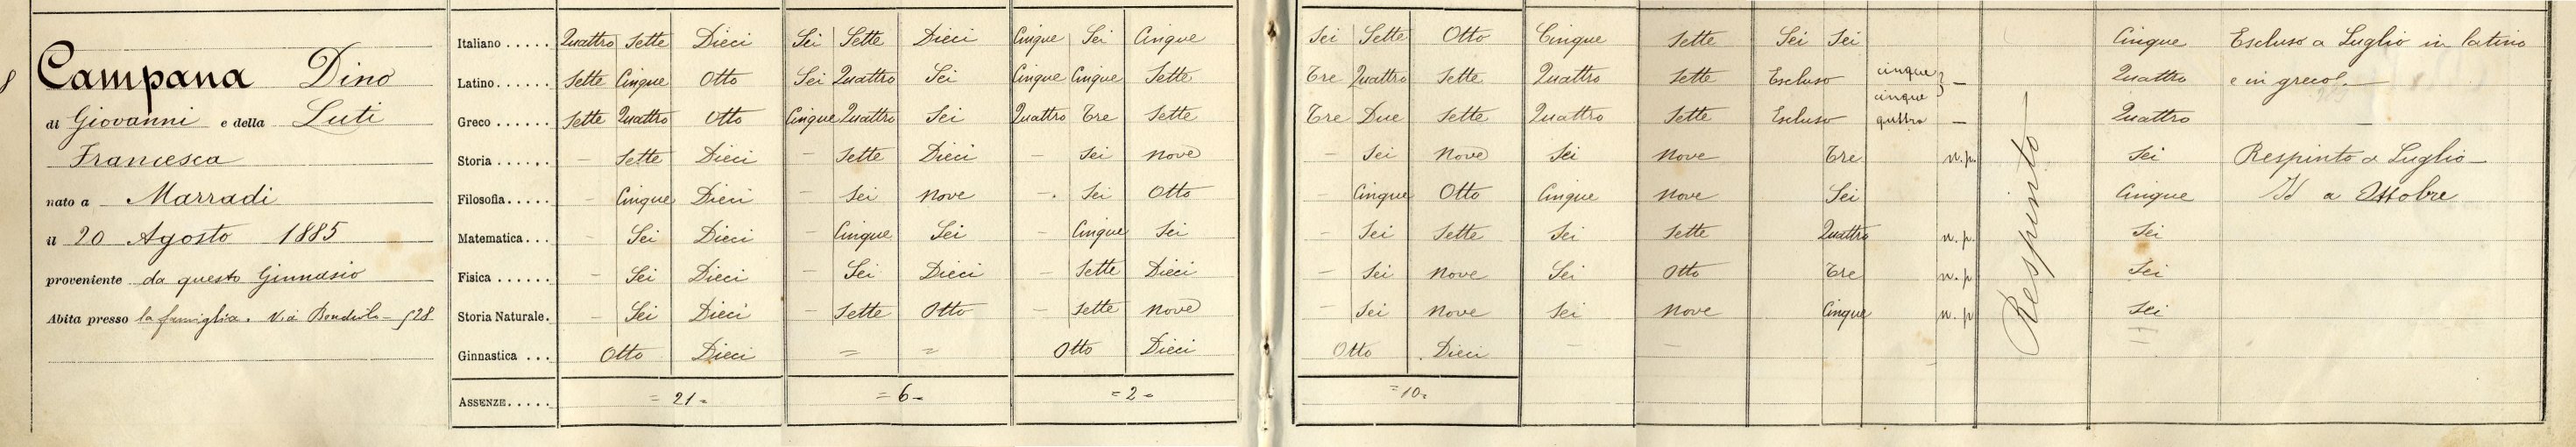 8 Campana Dino
di Giovanni e della Luti
Francesca
nato a Marradi
il 20 Agosto 1885
proviente da questo Ginnasio
Abita presso la famiglia. Via
Italiano ..... Quattro Sette Dieci Sei Sette Dieci Cinque Sei Cinque Sei Sette Otto Cinque Sette Sei Sei Cinque Escluso a Luglio in latino
Latino ...... Sette Cinque Otto Sei Quattro Sei Cinque Cinque Sette Tre Quattro Sette Quattro Sette Escluso cinque cinque } — Quattro e in greco. —
Greco ...... Sette Quattro Otto Cinque Quattro Sei Quattro Tre Sette Tre Due Sette Quattro Sette Escluso quattro — Quattro —
Storia ...... — Sette Dieci — Sette Dieci — Sei Nove — Sei Nove Sei Nove Tre n.p. Sei Respinto a Luglio —
Filosofia ..... — Cinque Dieci — Sei Nove — Sei Otto Cinque Otto Cinque Nove Sei Cinque Id a Ottobre
Matematica ... — Sei Dieci — Cinque Sei — Cinque Sei — Sei Sette Sei Sette Quattro n.p. Sei
Fisica ...... — Sei Dieci — Sei Dieci — Sette Dieci — Sei Nove Sei Otto Tre n.p. Sei
Storia Naturale. — Sei Dieci — Sette Otto — Sette Nove — Sei Nove Sei Nove Cinque n.p. Sei
Ginnastica ... Otto Dieci = = Otto Dieci Otto Dieci — — =
Assenze ..... = 21 = = 6 = = 2 = = 10 =
Respinto —